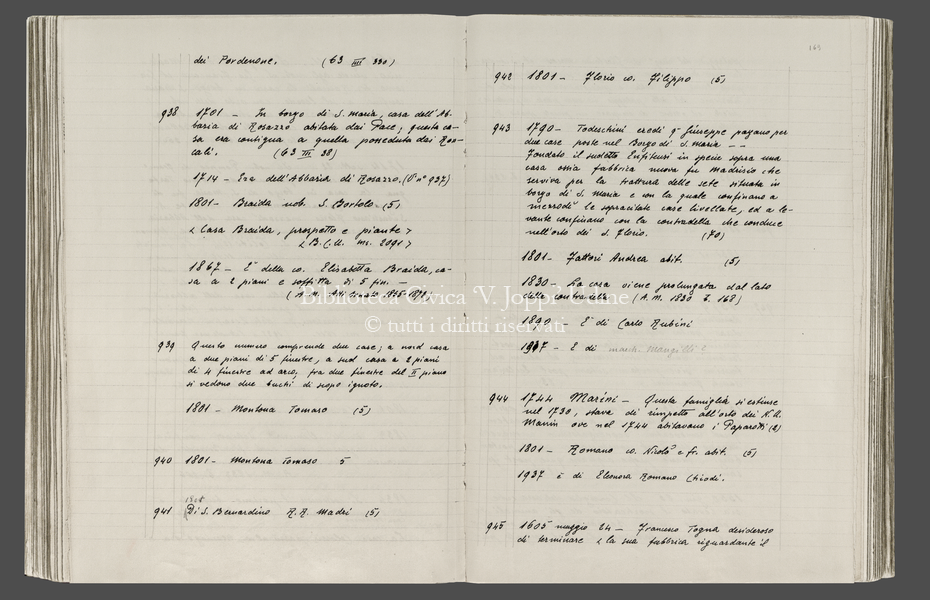 dei Pordenone. (63 III 330)
938 1701 – In borgo di S. Maria, casa dell'Ab-
bazia di Rosazzo abitata dai Pace, questa ca-
sa era contigua a quella posseduta dai Ron-
cali. (63 III 38)
1714 – Era dell'Abbazia di Rosazzo. (V. n° 937)
1801 – Braida nob. S. Bortolo (5)
< Casa Braida, prospetto e piante >
< B.C.U. ms. 2091 >
1867 – E' della co. Elisabetta Braida, ca-
sa a 2 piani e soffitta di 5 fin. –
939 Questo numero comprende due case; a nord casa
a due piani di 5 finestre, a sud casa a 2 piani
di 4 finestre ad arco, fra due finestre del II piano
si vedono due buchi di scopo ignoto.
1801 – Montona Tomaso (5)
940 1801 – Montona Tomaso 5
1801
941 Di S. Bernardino R.R. Madri (5)
169
942 1801 – Florio co. Filippo (5)
943 1790 – Todeschini eredi q. Giuseppe pagano per
due case poste nel Borgo di S. Maria – –
Fondato il sudetto Enfiteusi in specie sopra una
casa ossia fabbrica nuova fu Madriscio che
serviva per la trattura delle sete situata in
borgo di S. Maria e con la quale confinano a
mezzodì le sopracitate case livellate, ed a le-
vante confinano con la contradella che conduce
nell'orto dei S. Florio. (70)
1801 – Fattori Andrea abit. (5)
1830 – La casa viene prolungata dal lato
della contradella (A.M. 1830 F. 168)
1890 – E' di Carlo Rubini
1937 – E di march. Mangilli ?
944 1744 Marini – Questa famiglia si estinse
nel 1730, stava di rimpetto all'orto dei N.H.
Manin ove nel 1744 abitavano i Paparotti (2)
1801 – Romano co. Nicolò e fr. abit. (5)
1937 è di Eleonora Romano Chiodi.
945 1605 maggio 24 – Francesco Togna desideroso
di terminare < la sua fabbrica riguardante il
Biblioteca Civica 'V. Joppi' Udine
© tutti i diritti riservati